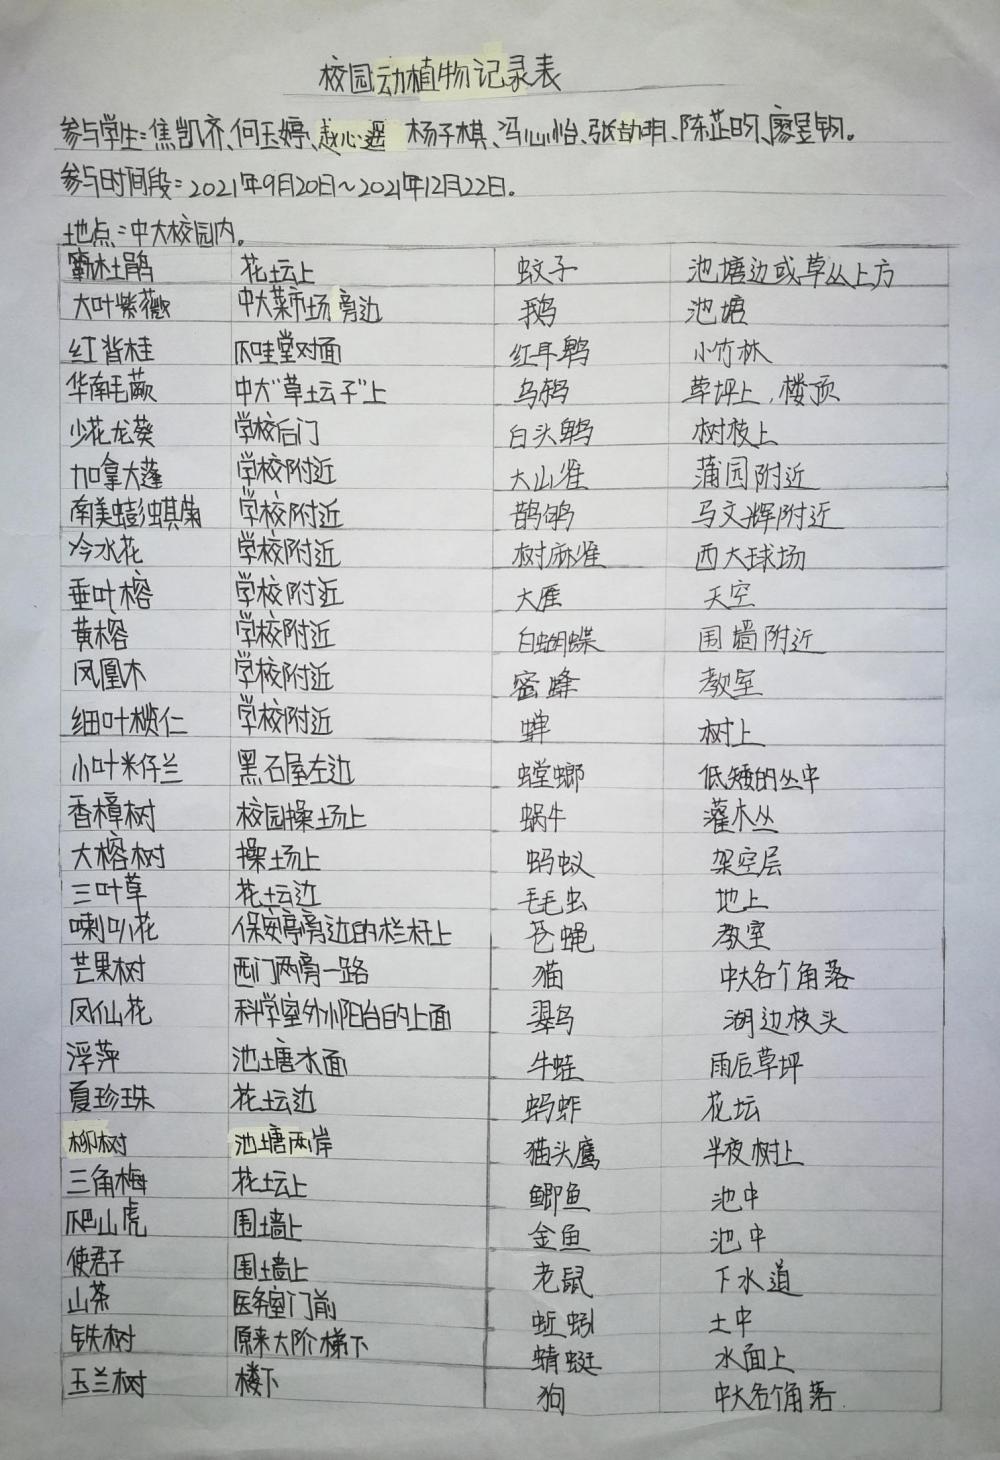 校园动植物记录表
参与学生:焦凯齐、何玉婷、赵心遥 杨子棋、冯心怡、张喆明、陈芷昀、廖昱钧。
参与时间段:2021年9月20日~2021年12月22日。
地点:中大校园内。
杜鹃 花坛上 蚊子 池塘边或草丛上方
大叶紫薇 中大菜市场旁边 鹅 池塘
红背桂 爪哇堂对面 红耳鹎 小竹林
华南毛蕨 中大“草坛子”上 乌鸫 草坪上,楼顶
少花龙葵 学校后门 白头鹎 树枝上
加拿大蓬 学校附近 大山雀 蒲园附近
南美蟛蜞菊 学校附近 鹊鸲 马文辉附近
冷水花 学校附近 树麻雀 西大球场
垂叶榕 学校附近 大雁 天空
黄榕 学校附近 白蝴蝶 围墙附近
凤凰木 学校附近 蜜蜂 教室
细叶榄仁 学校附近 蝉 树上
小叶米仔兰 黑石屋左边 螳螂 低矮的丛中
香樟树 校园操场上 蜗牛 灌木丛
大榕树 操场上 蚂蚁 架空层
三叶草 花坛边 毛毛虫 地上
喇叭花 保安亭旁边的栏杆上 苍蝇 教室
芒果树 西门两旁一路 猫 中大各个角落
凤仙花 科学室外小阳台的上面 翠鸟 湖边枝头
浮萍 池塘水面 牛蛙 雨后草坪
夏珍珠 花坛边 蚂蚱 花坛
柳树 池塘两岸 猫头鹰 半夜树上
三角梅 花坛上 鲫鱼 池中
爬山虎 围墙上 金鱼 池中
使君子 围墙上 老鼠 下水道
山茶 医务室门前 蚯蚓 土中
铁树 原来大阶梯下 蜻蜓 水面上
玉兰树 楼下 狗 中大各个角落.